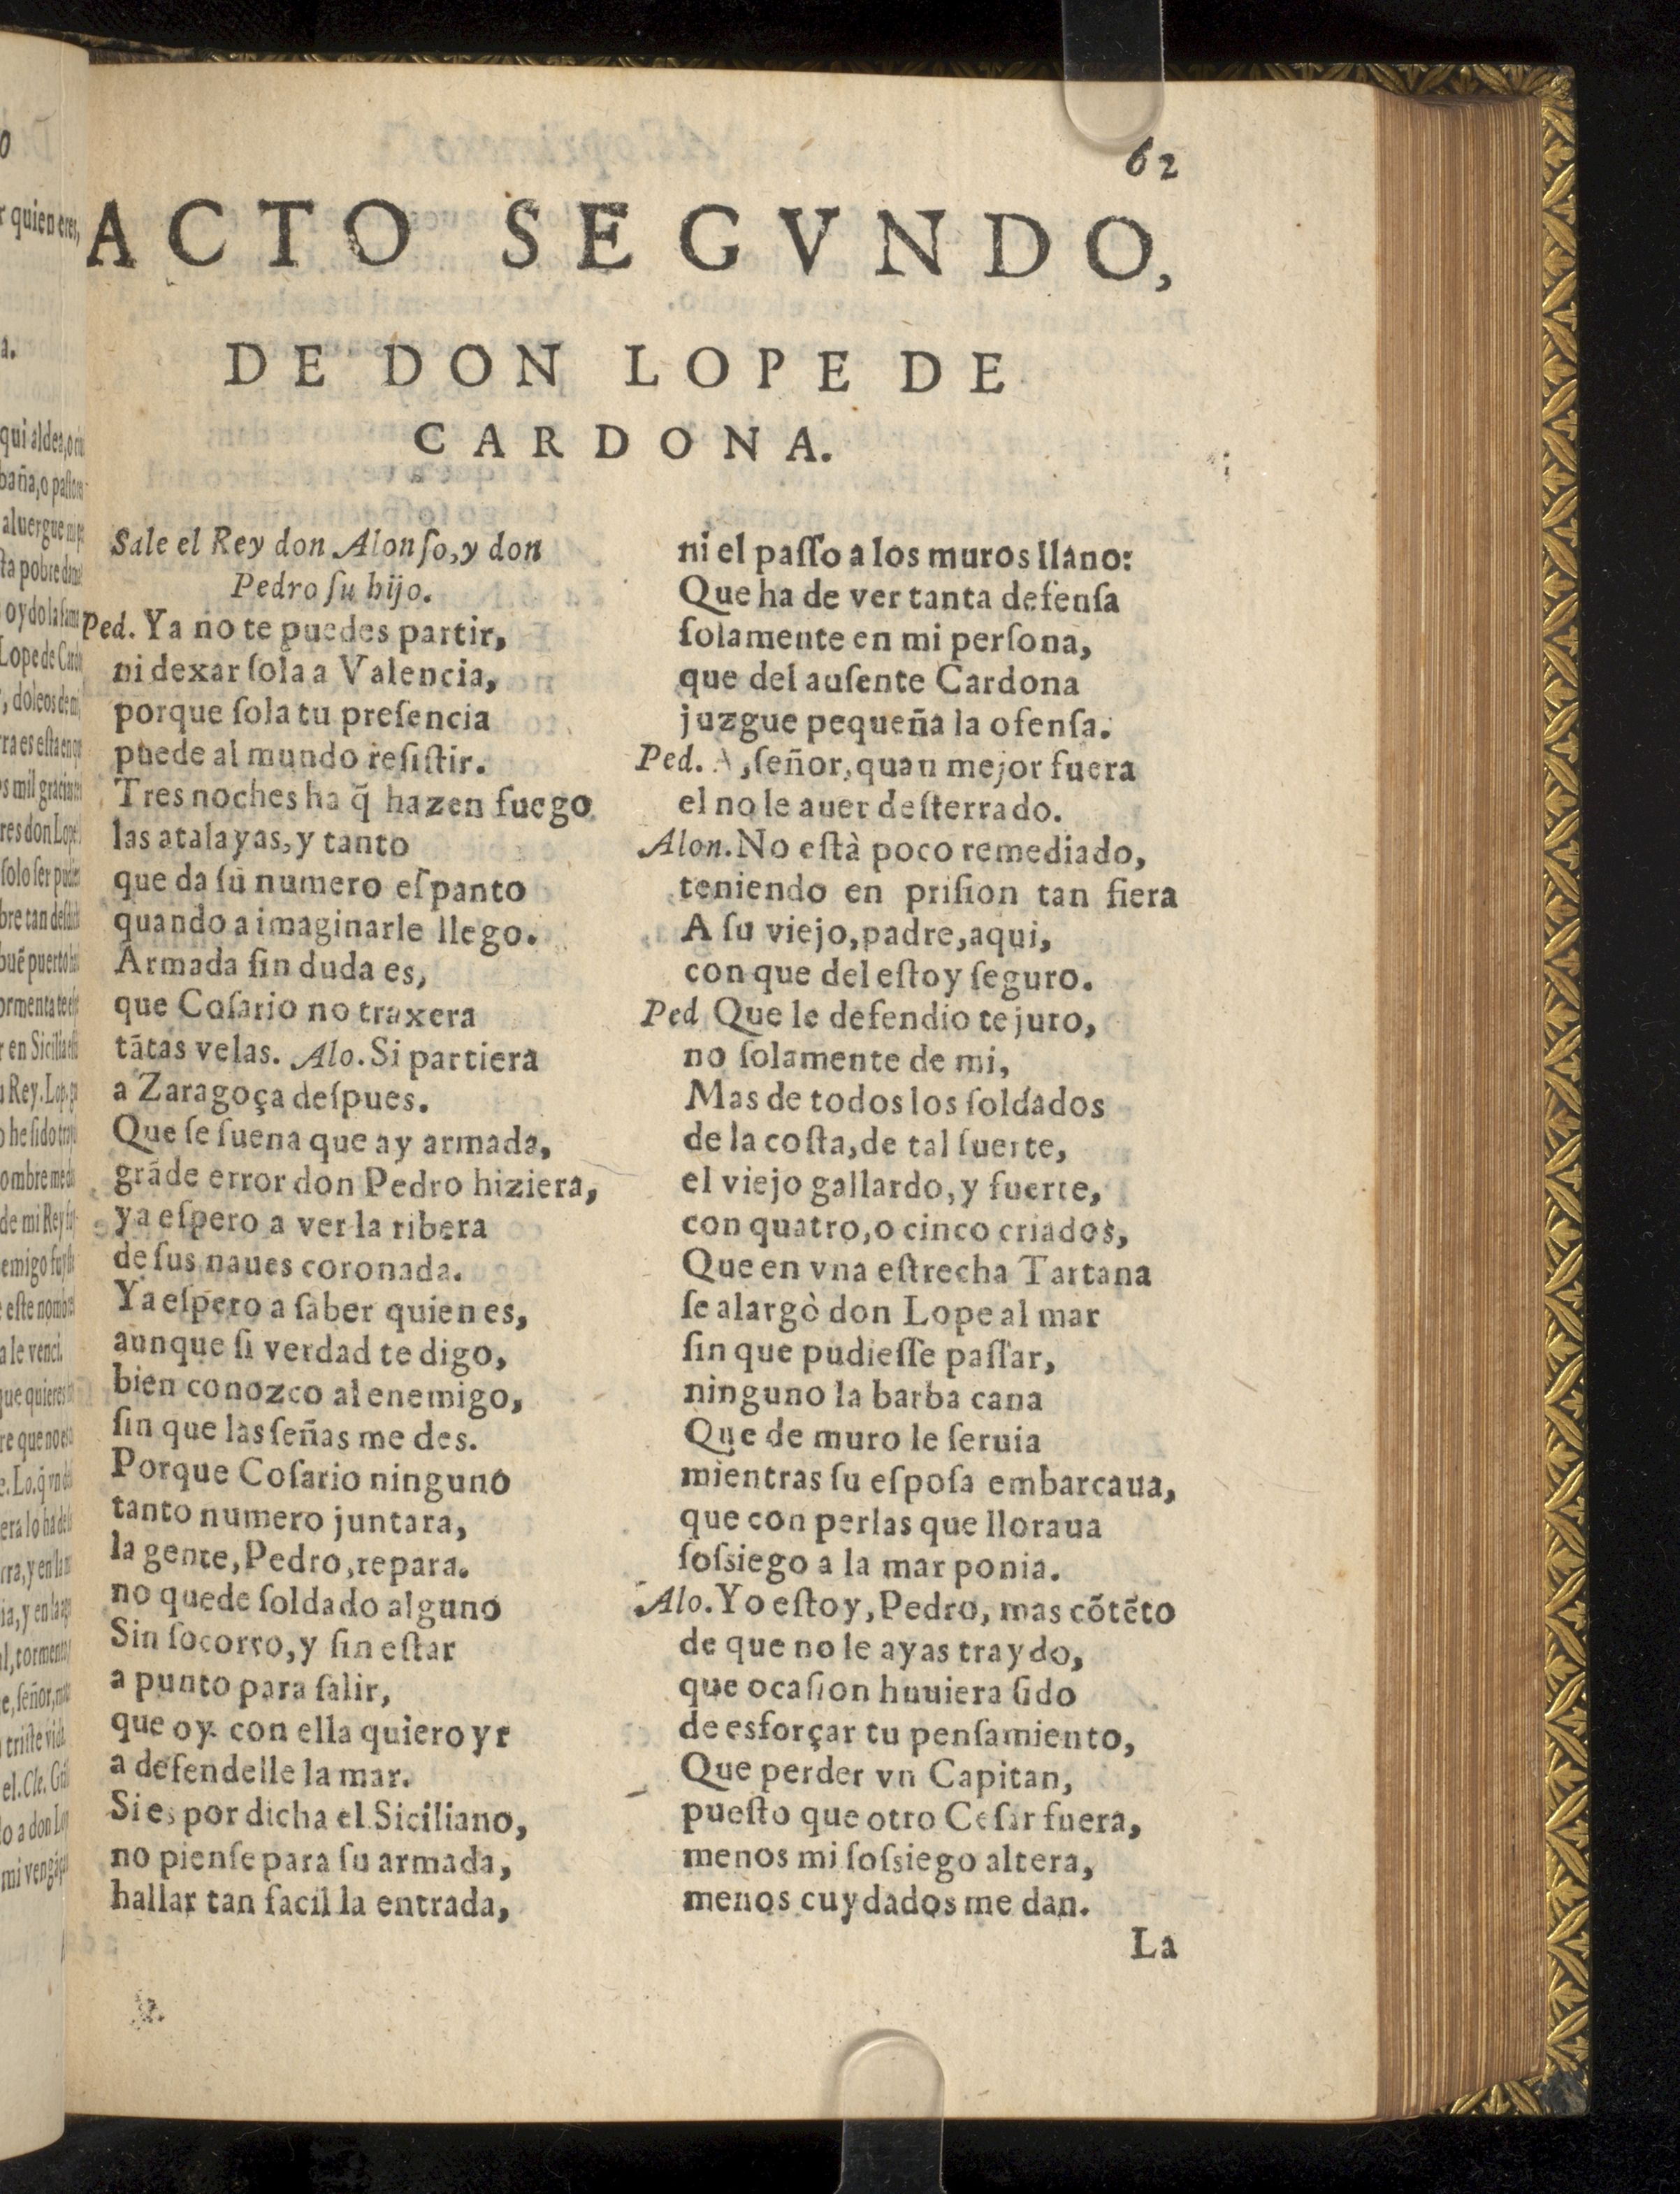 62
ACTO SEGVNDO,
DE DON LOPE DE
CARDONA.
Sale el Rey don Alonſo, y don
Pedro ſu hijo.
Ped. Ya no te puedes partir,
ni dexar ſola a Valencia,
porque ſola tu preſencia
puede al mundo reſiſtir.
Tres noches ha q̃ hazen fuego
las atalayas, y tanto
que da ſu numero eſpanto
quando a imaginarle llego.
Armada ſin duda es,
que Coſario no traxera
tãtas velas. Alo. Si partiera
a Zaragoça deſpues.
Que ſe ſuena que ay armada,
grãde error don Pedro hiziera,
ya eſpero a ver la ribera
de ſus naues coronada.
Ya eſpero a ſaber quien es,
aunque ſi verdad te digo,
bien conozco al enemigo,
ſin que las ſeñas me des.
Porque Coſario ninguno
tanto numero juntara,
la gente, Pedro, repara.
no quede ſoldado alguno
Sin ſocorro, y ſin eſtar
a punto para ſalir,
que oy con ella quiero yr
a defendelle la mar.
Si es por dicha el Siciliano,
no pienſe para ſu armada,
hallar tan facil la entrada,
ni el paſſo a los muros llano:
Que ha de ver tanta defenſa
ſolamente en mi perſona,
que del auſente Cardona
juzgue pequeña la ofenſa.
Ped. A, ſeñor, quan mejor fuera
el no le auer deſterrado.
Alon. No eſtà poco remediado,
teniendo en priſion tan fiera
A ſu viejo, padre, aqui,
con que del eſtoy ſeguro.
Ped Que le defendio te juro,
no ſolamente de mi,
Mas de todos los ſoldados
de la coſta, de tal ſuerte,
el viejo gallardo, y fuerte,
con quatro, o cinco criados,
Que en vna eſtrecha Tartana
ſe alargò don Lope al mar
ſin que pudieſſe paſſar,
ninguno la barba cana
Que de muro le ſeruia
mientras ſu eſpoſa embarcaua,
que con perlas que lloraua
ſoſsiego a la mar ponia.
Alo. Yo eſtoy, Pedro, mas cõtẽto
de que no le ayas traydo,
que ocaſion huuiera ſido
de esforçar tu penſamiento,
Que perder vn Capitan,
pueſto que otro Ceſar fuera,
menos mi ſoſsiego altera,
menos cuydados me dan.
La